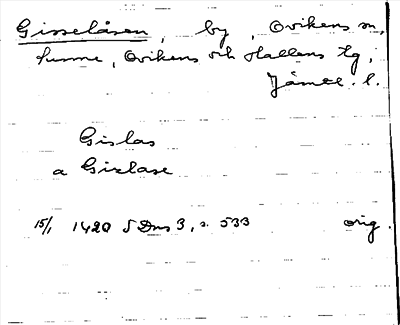 Gisselåsen, by, Ovikens sn,
hume, Ovikens och Hallens tg,
Jämtl. l.
Gislas
a Gixlase
15/1 1420 SDns 3, s. 533 orig.